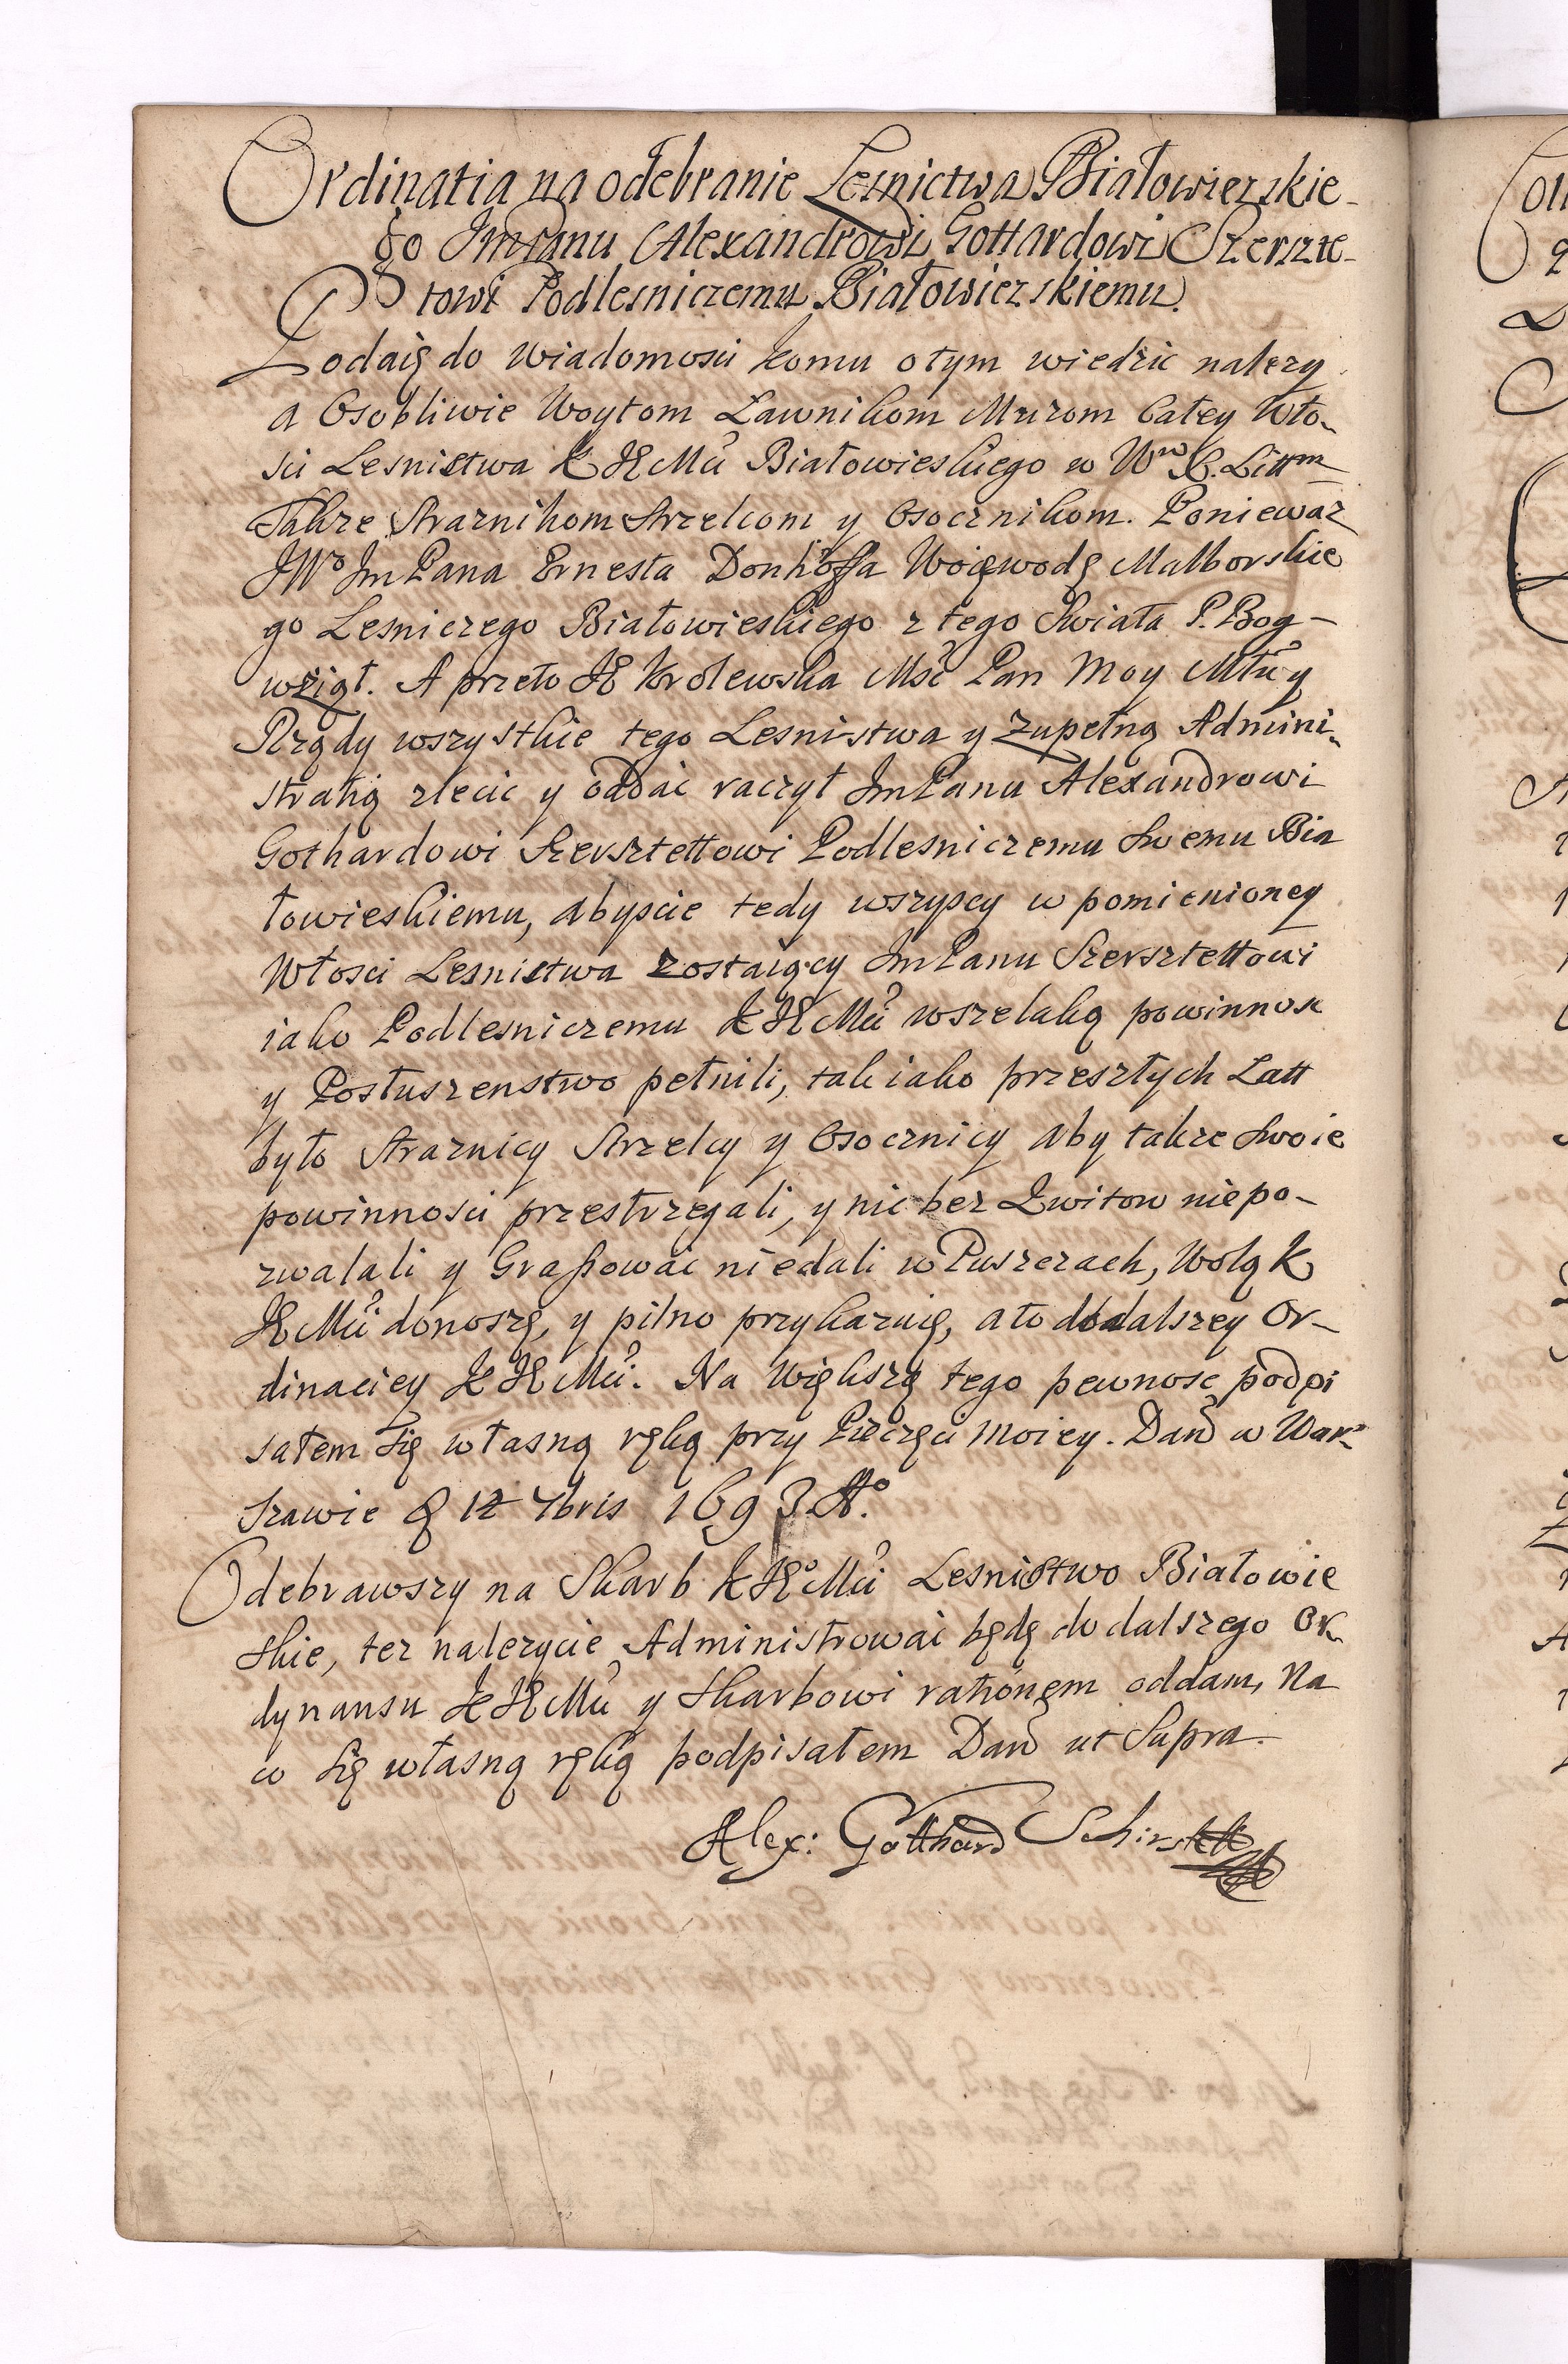 Ordinatia na odebranie Lesnictwa Białowierskie-
go ImPanu Alexandrowi Gottardowi Szerszte-
towi Podlesniczemu Białowierskiemu.
Podaię do wiadomosci komu o tym wiedzic nalezy
a Osobliwie Woytom Ławnikom Muzom całey Wło-
sci Lesnistwa K JE Mći Białowieskiego w Wm X. Littm
Takze Straznikom Strzelcom y Osocznikom. Poniewaz
JWo ImPana Ernesta Donhoffa Woięwodę Malborskie
go Lesniczego Białowieskiego z tego Swiata P. Bog-
wziął. A przeto JE Krolewska Mść Pan Moy Młćy
Rządy wszystkie tego Lesnistwa y zupełną Admini-
stratią zlecic y oddać raczył ImPanu Alexandrowi
Gothardowi Szersztettowi Podlesniczemu Swemu Bia
łowieskiemu, abyscie tedy wszyscy w pomienioney
Włosci Lesnistwa zostaiący ImPanu Szersztettowi
iako Podlesniczemu K JE Mći wszelaką powinnosc
y Posłuszenstwo pełnili, tak iako przeszłych Latt
było Straznicy Strzelcy y Osocznicy aby takze Swoie
powinnosci przestrzegali, y nic bez Kwitow niepo-
zwalali y Grassowac niedali w Puszczach, Wolą K
JE Mći donoszę, y pilno przykazuię, a to do dalszey Or-
dinaciey K JE Mći. Na większą tego pewnosc podpi
sałem się własną ręką przy Pieczęci moiey. Dan w War-
szawie d 12 7bris 1693 Ao.
Odebrawszy na Skarb K JEo Mći Lesnistwo Białowie
skie, tez nalezycie Administrowai będę do dalszego Or-
dynansu K JE Mći y Skarbowi rationęm oddam, Na
co się własną ręką podpisałem Dan ut Supra.
Alex: Gotthard Schirstett